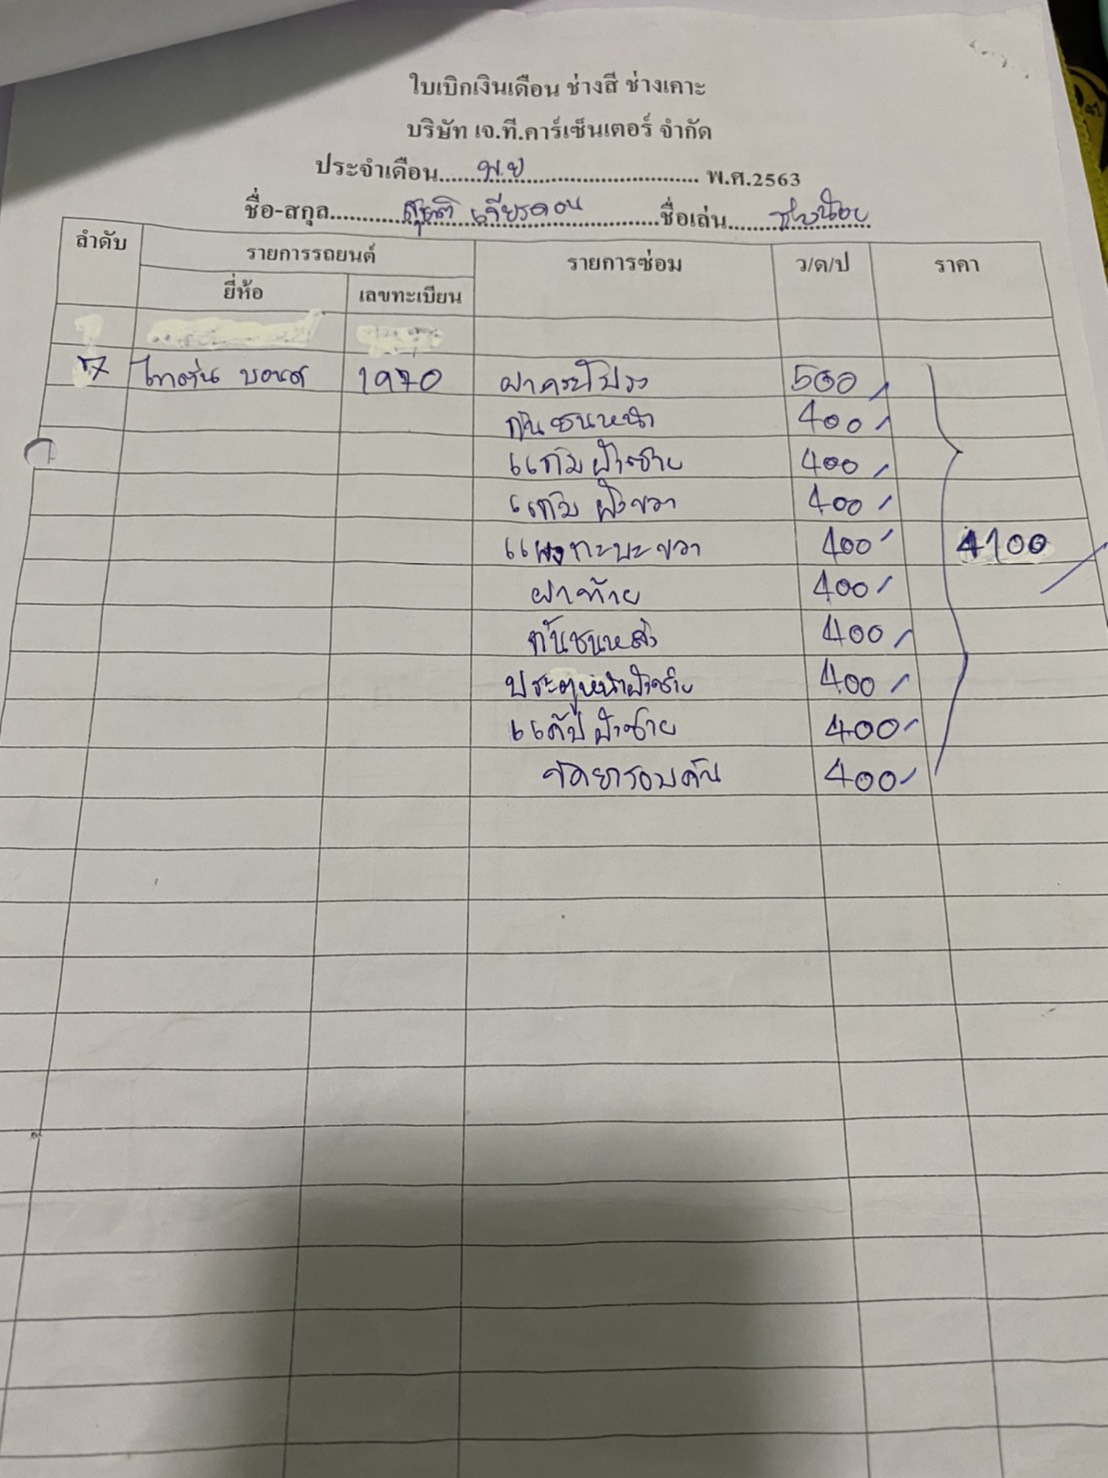 ใบเบิกเงินเดือน ช่างสี ช่างเคาะ
บริษัท เจ.ที.คาร์เซ็นเตอร์ จำกัด
ประจำเดือน......พ.ย.......................... พ.ศ.2563
ชื่อ-สกุล.....................ชื่อเล่น....ช่างน้อย
ลำดับ รายการรถยนต์ รายการซ่อม ว/ด/ป ราคา
ยี่ห้อ เลขทะเบียน
7 ไทตัน บอนด์ 1970 ฝากระโปรง 500
กันชนหน้า 400
แก้มฝั่งซ้าย 400
แก้มฝั่งขวา 400
แผงกะบะขวา 400 4100
ฝาท้าย 400
กันชนหลัง 400
ประตูหน้าฝั่งซ้าย 400
แค๊ปฝั่งซ้าย 400
ขัดยารอบคัน 400